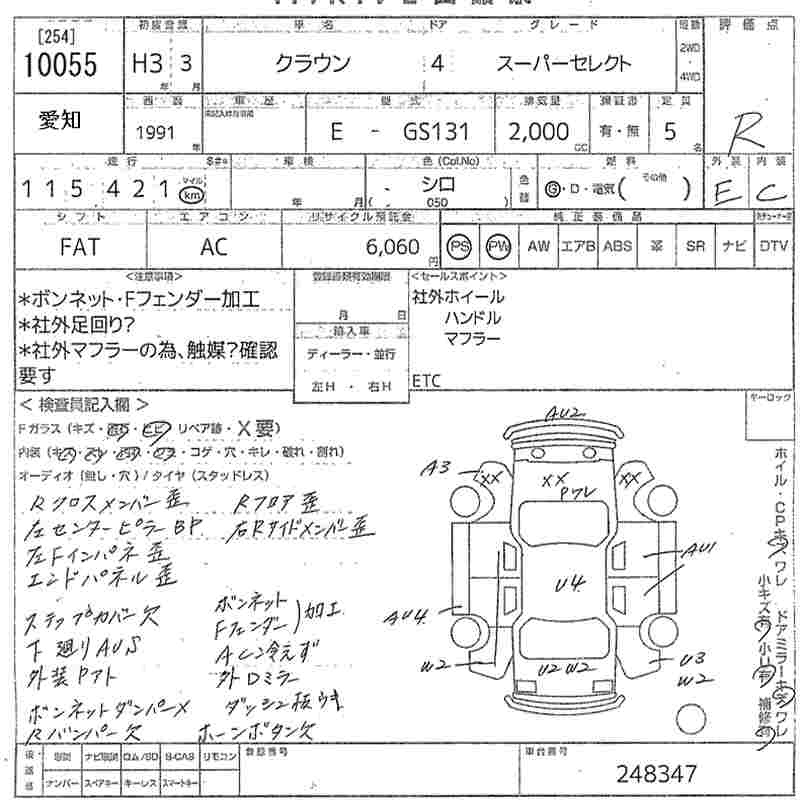 初度登録 車名 ドア グレード 評価点
[254]
10055 H3 3 クラウン 4 スーパーセレクト 2WD・4WD
年 月
愛知 車歴 型式 排気量 定員
1991 E - GS131 2,000 有・無 5 R
年 CC 名
走行 車検 色(Col.No) 燃料 外装 内装
115,421 マイル km 年 月 シロ G・D・電気( その他 ) E C
( 050 )
シフト エアコン リサイクル預託金 純正装備品
FAT AC 6,060円 PS PW AW エアB ABS 革 SR ナビ DTV
<注意事項> 登録書類有効期限 <セールスポイント>
*ボンネット・Fフェンダー加工 月 日 社外ホイール
*社外足回り? 輸入車 ハンドル
*社外マフラーの為、触媒?確認 ディーラー・並行 マフラー
要す 左H・右H ETC
<検査員記入欄> キーロック
Fガラス(キズ・・ヒビ リペア跡・X要)
内装(キズ・・・・コゲ・穴・キレ・破れ・割れ)
オーディオ(無し・穴)/タイヤ(スタッドレス)
Rクロスメンバー歪 Rフロア歪
左センターピラーBP 右Rサイドメンバー歪
左Fインパネ歪
エンドパネル歪
ステップカバー欠 ボンネット
Fフェンダー)加工
下廻りAUS ACシ冷えず
外装Pアト 外ロミラー
ボンネットダンパーX ダッシュ板ウキ
Rバンパー欠 ホーンボタン欠
AU2
A3 XX XX XX
Pワレ
AU1
U4
AU4
W2 U2 W2 U3
W2
ホイル・CPキズ、ワレ ドアミラーキズワレ
小キズ有 小U有 補修有
ナビ説明 ロム/SD B-CAS リモコン 登録番号 車台番号
ナンバー スペアキー キーレス スマートキー 248347